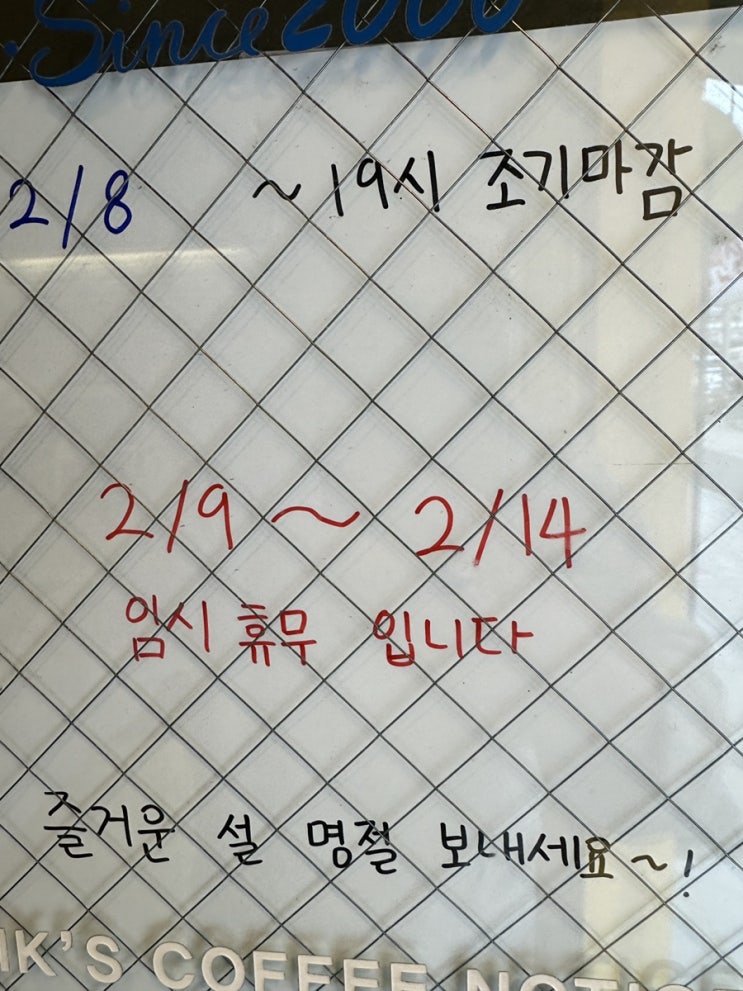 Since 2000
2/8 ~ 19시 조기마감
2/9 ~ 2/14
임시 휴무 입니다
즐거운 설 명절 보내세요~!
K'S COFFEE NOTICE